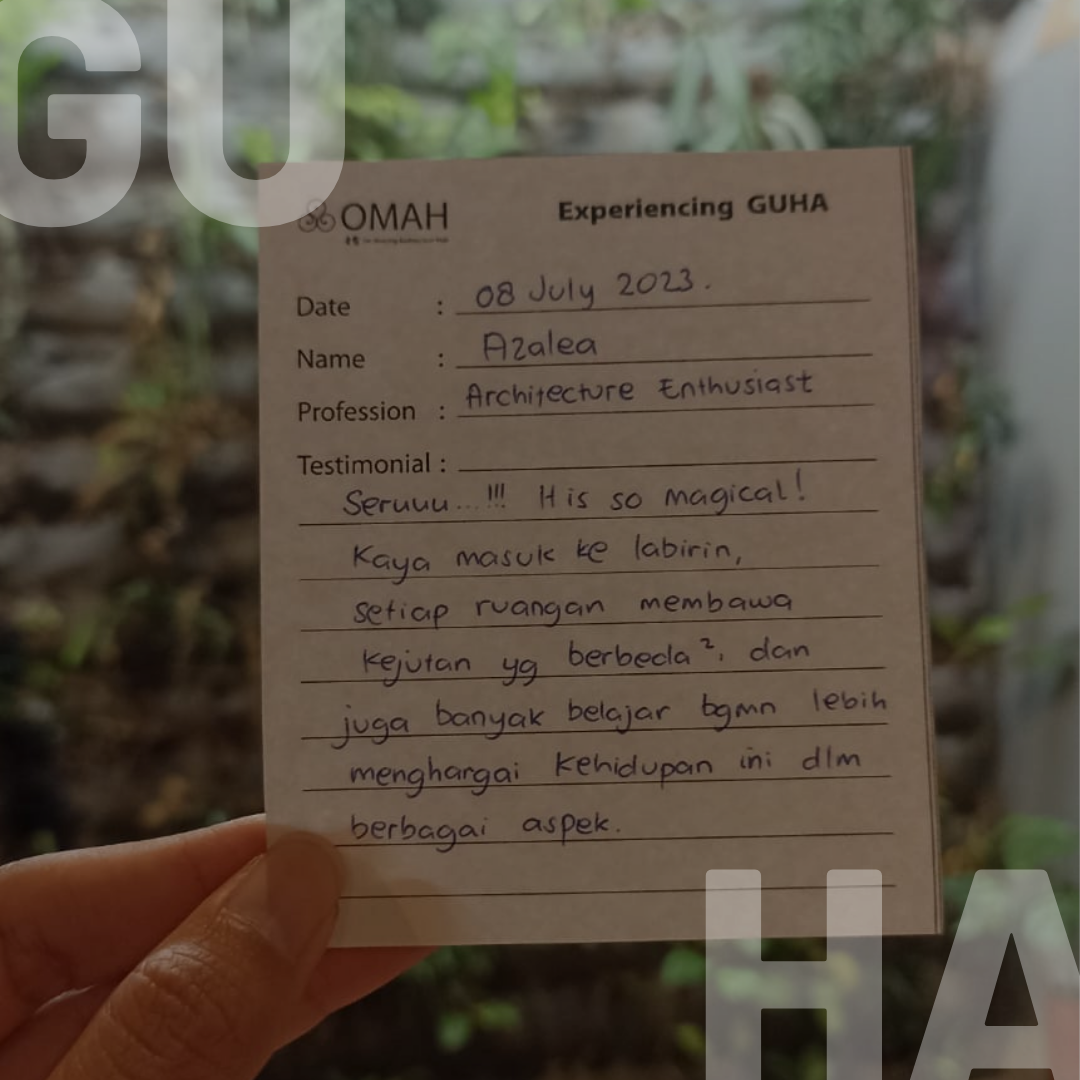 GU
OMAH
Experiencing GUHA
Date : 08 July 2023.
Name : Azalea
Profession : Architecture Enthusiast
Testimonial :
Seruuu...!!! It is so magical!
Kaya masuk ke labirin,
setiap ruangan membawa
kejutan yg berbeda², dan
juga banyak belajar bgmn lebih
menghargai kehidupan ini dlm
berbagai aspek.
HA